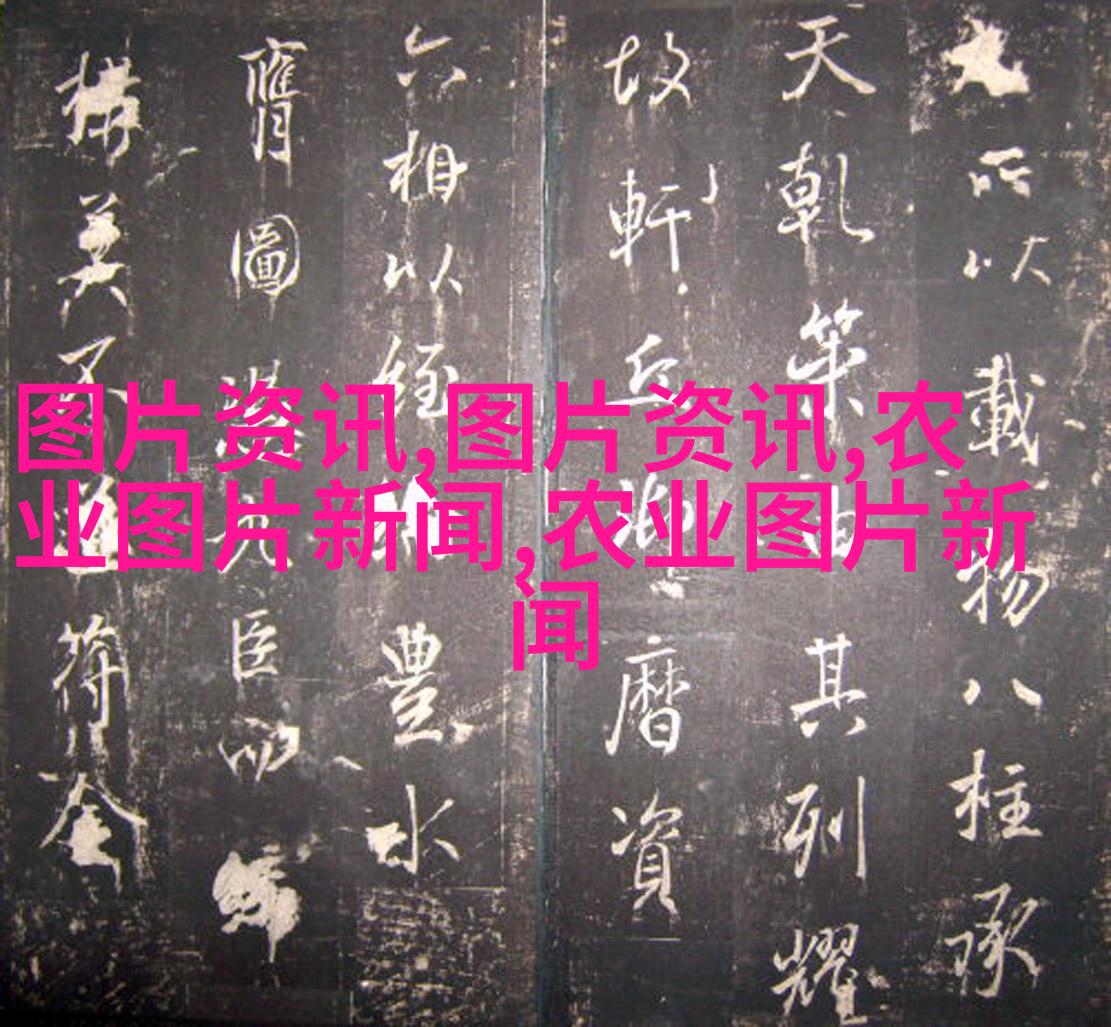 图片资讯,图片资讯,农
业图片新闻,农业图片新
闻
所以載物八柱承
天乾策其列耀
故軒丘曆資
六相以經豐水
膺圖臣
構美不符